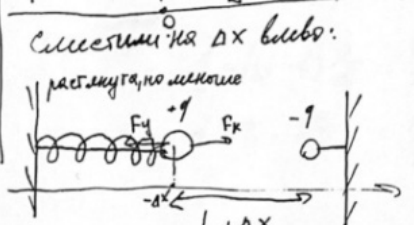 0
Сместили на Δx влево:
растянута, но меньше
+q
-q
Fy
Fk
-Δx
L+Δx